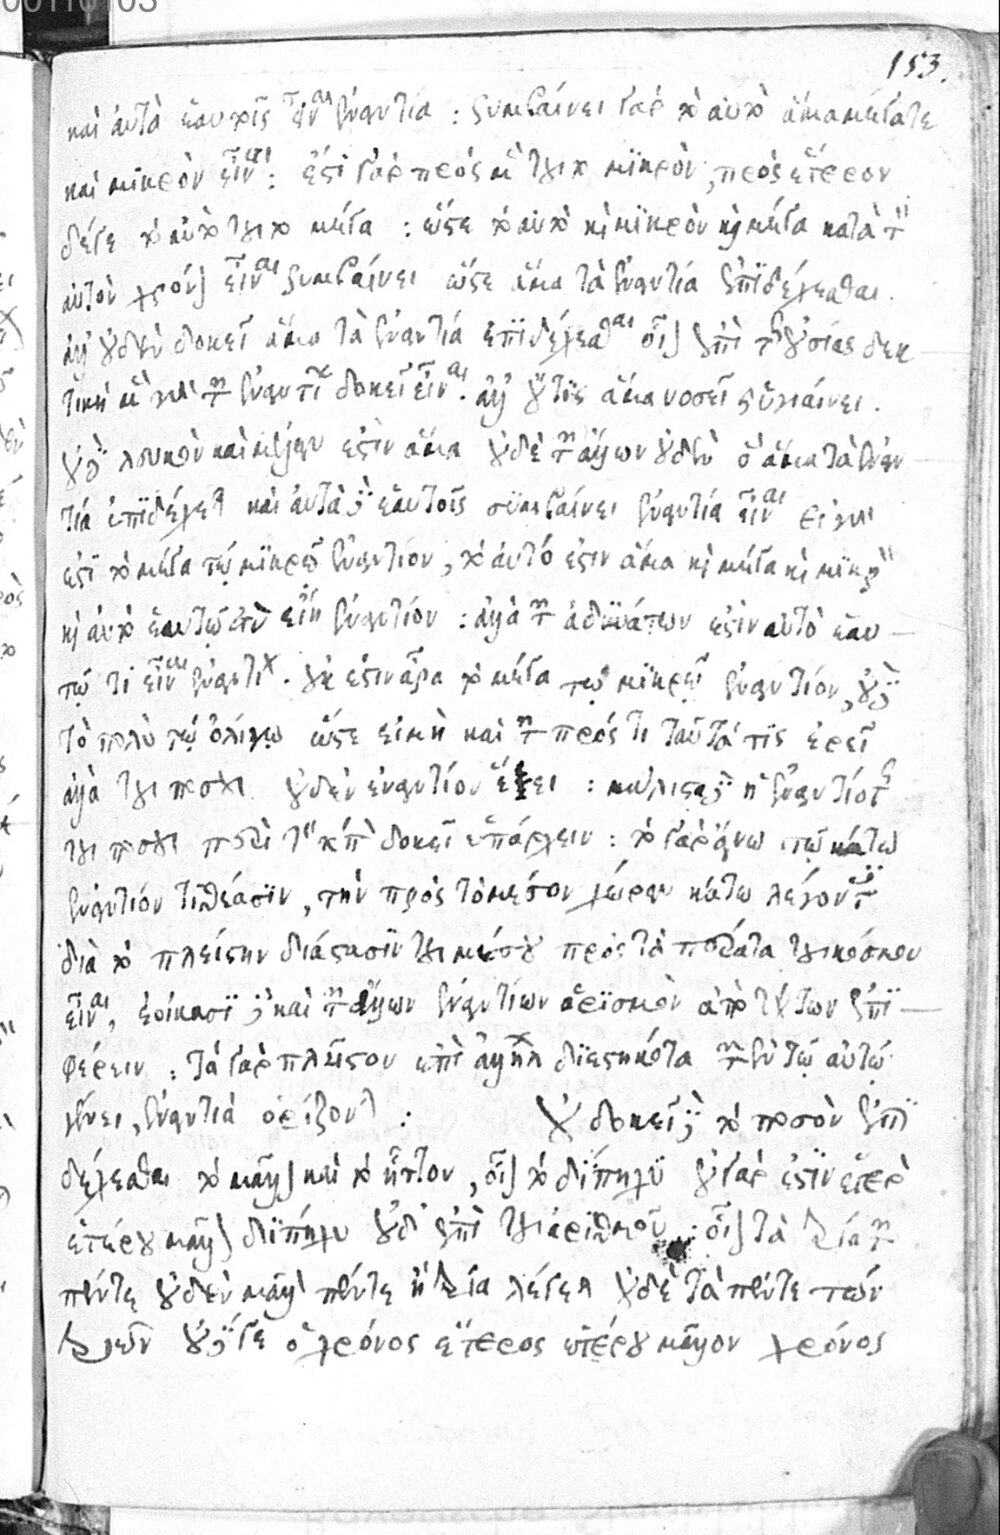 153.
καὶ αὐτὰ ἑαυτοῖς εἶναι ἐναντία : συμβαίνει γὰρ τὸ αὐτὸ ἅμα μέγα τε
καὶ μικρὸν εἶναι : ἔστι γὰρ πρὸς μὲν τοῦτο μικρὸν, πρὸς ἕτερον
δέ γε τὸ αὐτὸ τοῦτο μέγα : ὥστε τὸ αὐτὸ κὶ μικρὸν κὶ μέγα κατὰ τὸν
αὐτὸν χρόνον εἶναι συμβαίνει ὥστε ἅμα τὰ ἐναντία ἐπιδέχεσθαι.
ἀλλ' οὐδὲν δοκεῖ ἅμα τὰ ἐναντία ἐπιδέχεσθαι οἷον ἐπὶ τῆς οὐσίας δεκ
τικὴ μὲν γὰρ τῶν ἐναντίων δοκεῖ εἶναι. ἀλλ' οὔτις ἅμα νοσεῖ κὶ ὑγιαίνει.
οὐδὲ λευκὸν καὶ μέλαν ἐστὶν ἅμα οὐδὲ τῶν ἄλλων οὐδὲν ὃ ἅμα τὰ ἐναν
τία ἐπιδέχεται καὶ αὐτὰ δ' ἑαυτοῖς συμβαίνει ἐναντία εἶναι εἰ γάρ
ἐστι τὸ μέγα τῷ μικρῷ ἐναντίον, τὸ αὐτό ἐστιν ἅμα κὶ μέγα κὶ μικρὸν
κὶ αὐτὸ ἑαυτῷ ἂν εἴη ἐναντίον : ἀλλὰ τῶν ἀδυνάτων ἐστὶν αὐτὸ ἑαυ
τῷ τι εἶναι ἐναντίον. οὐκ ἔστιν ἄρα τὸ μέγα τῷ μικρῷ ἐναντίον, οὐδὲ
τὸ πολὺ τῷ ὀλίγῳ ὥστε εἰ κὴ καὶ τῶν πρός τι ταῦτά τις ἐρεῖ
ἀλλὰ τοῦ ποσοῦ οὐδὲν ἐναντίον ἕξει : μάλιστα δὲ ἡ ἐναντιότης
τοῦ ποσοῦ περὶ τὸν τόπον δοκεῖ ὑπάρχειν : τὸ γὰρ ἄνω τῷ κάτω
ἐναντίον τιθέασιν, τὴν πρὸς τὸ μέσον χώραν κάτω λέγοντες
διὰ τὸ πλείστην διάστασιν τοῦ μέσου πρὸς τὰ πέρατα τοῦ κόσμου
εἶναι, ἐοίκασι δὲ καὶ τῶν ἄλλων ἐναντίων ὁρισμὸν ἀπὸ τούτων ἐπι
φέρειν : τὰ γὰρ πλεῖστον ἀπ' ἀλλήλων διεστηκότα τῶν ἐν τῷ αὐτῷ
γένει, ἐναντία ὁρίζονται : Οὐ δοκεῖ δὲ τὸ ποσὸν ἐπι
δέχεσθαι τὸ μᾶλλον καὶ τὸ ἧττον, οἷον τὸ δίπηχυ οὐ γάρ ἐστιν ἕτερον
ἑτέρου μᾶλλον δίπηχυ οὐδ' ἐπὶ τοῦ ἀριθμοῦ : οἷον τὰ τρία τῶν
πέντε οὐδὲν μᾶλλον πέντε ἢ τρία λέγεται οὐδὲ τὰ πέντε τῶν
τριῶν οὐδέ γε ὁ χρόνος ἕτερος ἑτέρου μᾶλλον χρόνος